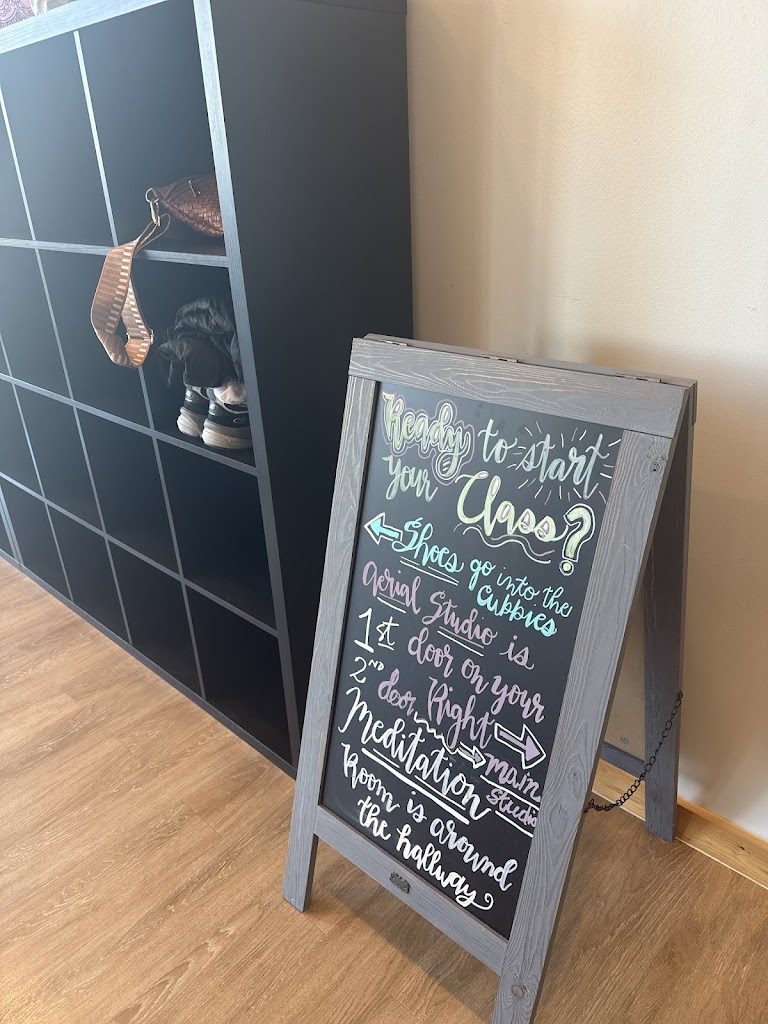 Ready to start
your Class?
Shoes go into the
Cubbies
Aerial Studio is
1st door on your
Right
2ND door main
studio
Meditation
Room is around
the hallway